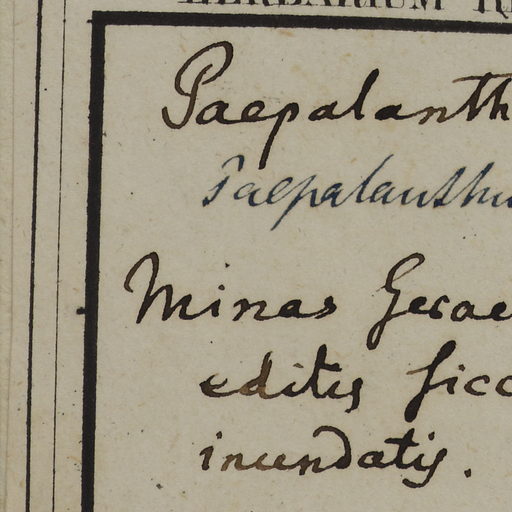 HERBARIUM R
Paepalanth
Paepalanthu
Minas Gerae
editis sicc
inundatis.